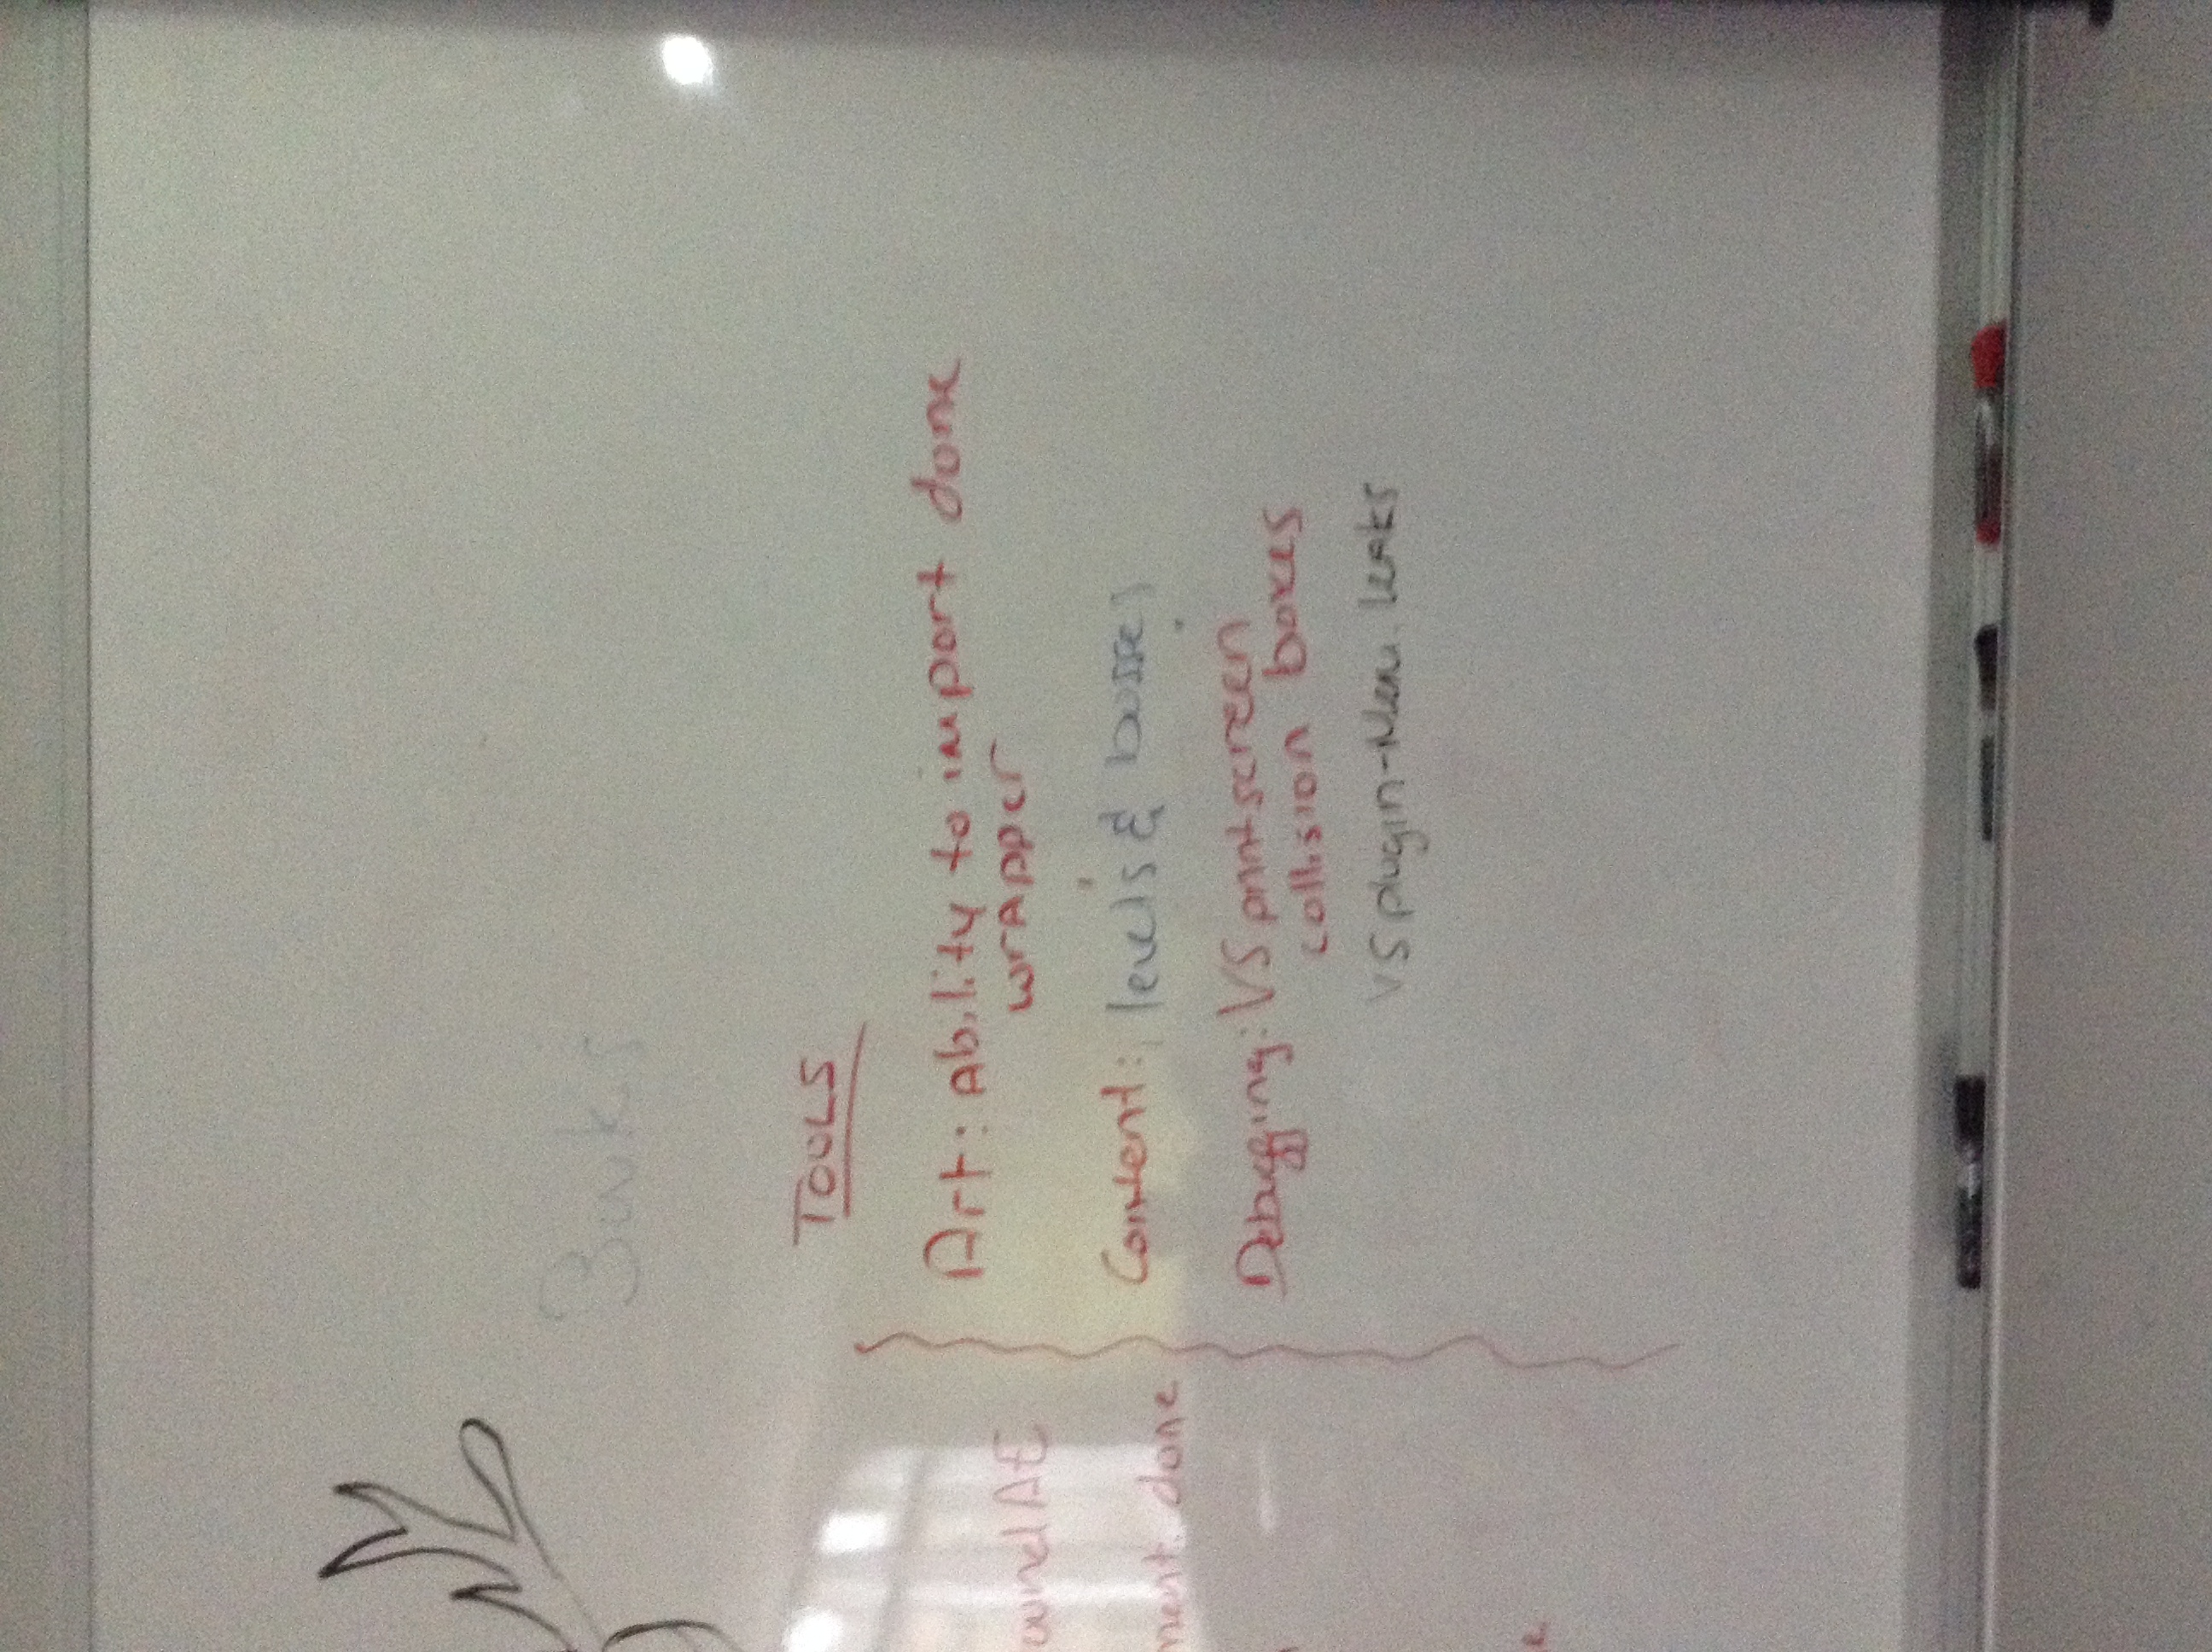 TOOLS
Art: Ability to import done
wrapper
Content: levels & bosses
Debugging: VS printscreen
collision boxes
VS plugin-Mem. leaks
AE
done